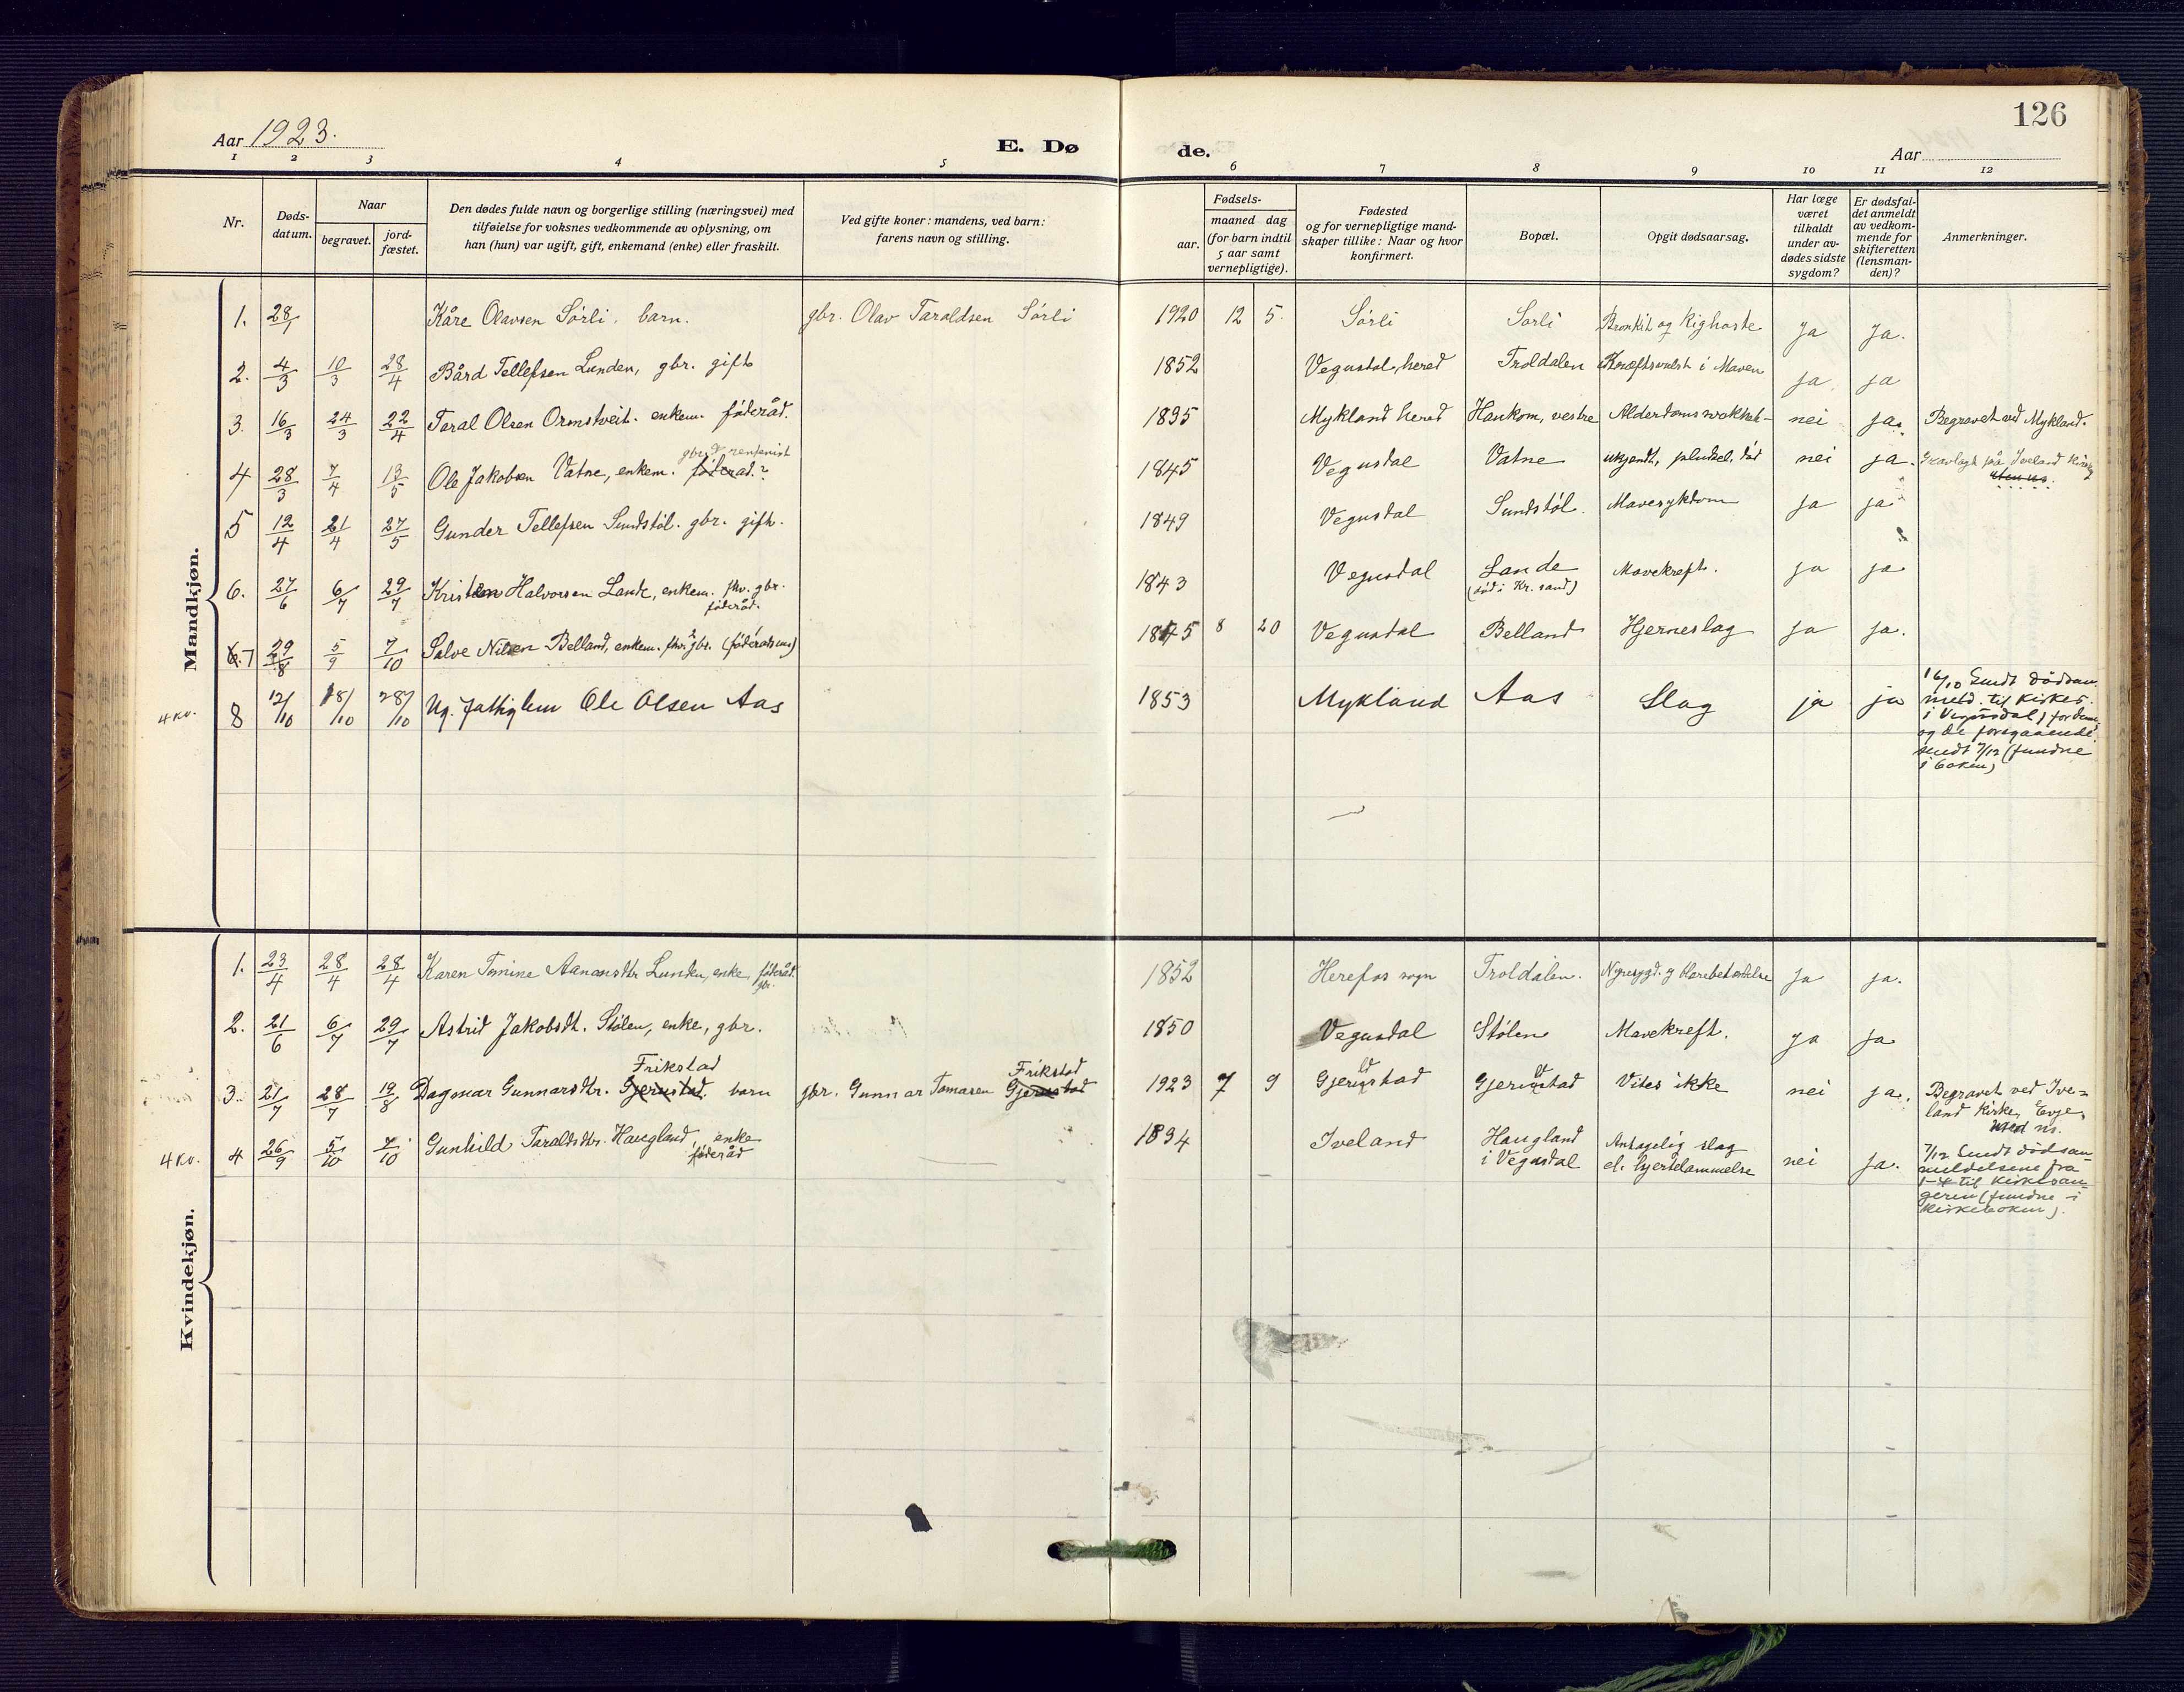 126
Aar 1923.
E. Dø de.
Aar
1 2 3 4 5 6 7 8 9 10 11 12
Nr.
Døds-
datum.
Naar
begravet.
jord-
fæstet.
Den dødes fulde navn og borgerlige stilling (næringsvei) med
tilføielse for voksnes vedkommende av oplysning, om
han (hun) var ugift, gift, enkemand (enke) eller fraskilt.
Ved gifte koner: mandens, ved barn:
farens navn og stilling.
Fødsels-
aar.
maaned dag
(for barn indtil
5 aar samt
vernepligtige).
Fødested
og for vernepligtige mand-
skaper tillike: Naar og hvor
konfirmert.
Bopæl.
Opgit dødsaarsag.
Har læge
været
tilkaldt
under av-
dødes sidste
sygdom?
Er dødsfal-
det anmeldt
av vedkom-
mende for
skifteretten
(lensman-
den)?
Anmerkninger.
Mandkjøn.
1. 28/1 Kåre Olavsen Sørli. barn. gbr. Olav Taraldsen Sørli 1920 12 5. Sørli Sorli Bronkit og Kighoste Ja Ja.
2. 4/3 10/3 28/4 Bård Tellefsen Lunden, gbr. gift 1852 Vegusdal, herad Troldalen Kræftsvulst i Maven ja ja
3. 16/3 24/3 22/4 Taral Olsen Ormstveit. enkem. føderåd. 1835 Mykland herad Haukom, vestre Alderdomssvakhet nei ja. Begravet ved Mykland.
gbr. rentenist
4 28/3 7/4 13/5 Ole Jakobsen Vatne, enkem. føderad.? 1845 Vegusdal Vatne ukjendt, pludsel. død nei ja. Gravlagt på Iveland Kirkeg
uten ns.
5 12/4 21/4 27/5 Gunder Tellefsen Sundstøl. gbr. gift. 1849 Vegusdal Sundstøl. Mavesykdom ja ja
6. 27/6 6/7 29/7 Kristen Halvorsen Lande, enkem. fhv. gbr. 1843 Vegusdal Lande Mavekreft. ja ja
føderåd. (død i Kr. sand)
6.7 29/8 5/9 7/10 Salve Nilsen Belland, enkem. fhv. gbr. (føderadsm) 1845 8 20 Vegusdal Belland Hjerneslag ja ja.
4 Kv. 8 12/10 18/10 28/10 Ug. fattiglem Ole Olsen Aas 1853 Mykland Aas Slag ja ja
16/10 Sendt dødsan-
meld. til kirkes.
i Vegusdal, for denne
og de foregaaende
sendt 7/12 (fundne
i boken)
Kvindekjøn.
1. 23/4 28/4 28/4 Karen Tomine Aanonsdtr Lunden, enke, føderåd. 1852 Herefos sogn Troldalen. Nyresygd. og blærebetændelse Ja ja.
gbr.
2. 21/6 6/7 29/7 Astrid Jakobsdt. Stølen, enke, gbr. 1850 Vegusdal Stølen Mavekreft. ja ja
Frikstad Frikstad
3. 21/7 28/7 19/8 Dagmar Gunnarsdtr. Gjerustad. barn gbr. Gunnar Tomasen Gjerustad 1923 7 9 Gjerustad Gjerustad Vites ikke nei ja. Begravet ved Ive-
land Kirke, Evje,
uten ns.
4 Kv. 4 26/9 5/10 7/10 Gunhild Taraldsdtr. Haugland, enke 1834 Iveland Haugland Antagelig slag nei ja.
føderåd i Vegusdal el. hjertelammelse
7/12 Sendt dødsan-
meldelsene fra
1-4 til kirkesan-
geren (fundne i
kirkeboken).